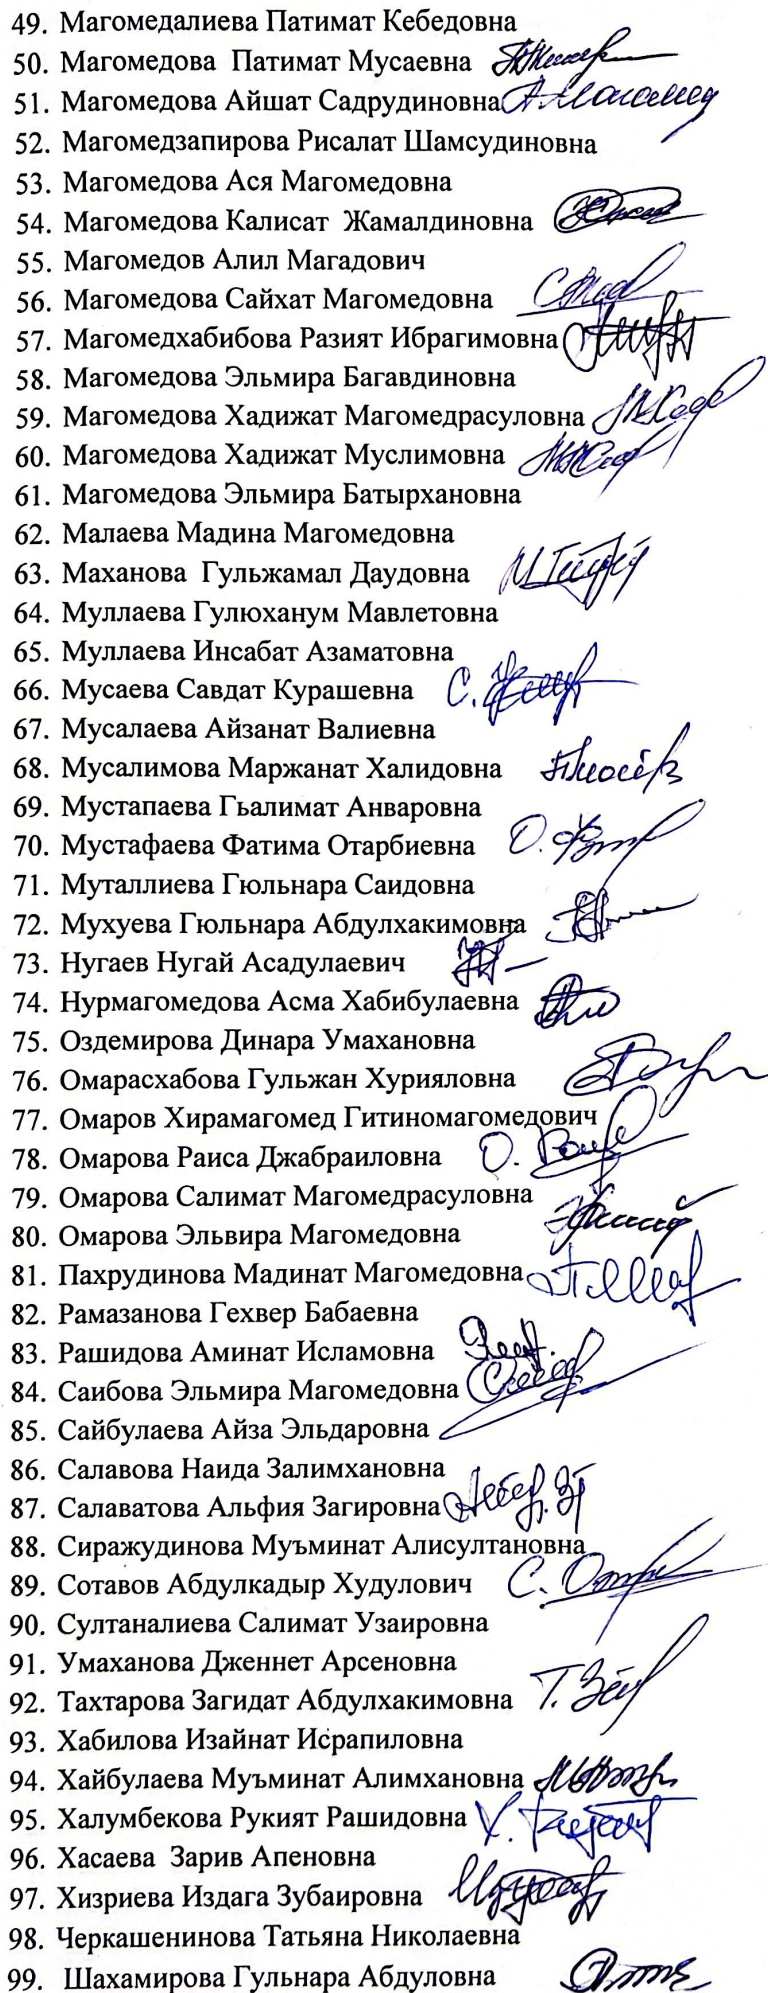 49. Магомедалиева Патимат Кебедовна
50. Магомедова Патимат Мусаевна
51. Магомедова Айшат Садрудиновна
52. Магомедзапирова Рисалат Шамсудиновна
53. Магомедова Ася Магомедовна
54. Магомедова Калисат Жамалдиновна
55. Магомедов Алил Магадович
56. Магомедова Сайхат Магомедовна
57. Магомедхабибова Разият Ибрагимовна
58. Магомедова Эльмира Багавдиновна
59. Магомедова Хадижат Магомедрасуловна
60. Магомедова Хадижат Муслимовна
61. Магомедова Эльмира Батырхановна
62. Малаева Мадина Магомедовна
63. Маханова Гульжамал Даудовна
64. Муллаева Гулюханум Мавлетовна
65. Муллаева Инсабат Азаматовна
66. Мусаева Савдат Курашевна
67. Мусалаева Айзанат Валиевна
68. Мусалимова Маржанат Халидовна
69. Мустапаева Гьалимат Анваровна
70. Мустафаева Фатима Отарбиевна
71. Муталлиева Гюльнара Саидовна
72. Мухуева Гюльнара Абдулхакимовна
73. Нугаев Нугай Асадулаевич
74. Нурмагомедова Асма Хабибулаевна
75. Оздемирова Динара Умахановна
76. Омарасхабова Гульжан Хурияловна
77. Омаров Хирамагомед Гитиномагомедович
78. Омарова Раиса Джабраиловна
79. Омарова Салимат Магомедрасуловна
80. Омарова Эльвира Магомедовна
81. Пахрудинова Мадинат Магомедовна
82. Рамазанова Гехвер Бабаевна
83. Рашидова Аминат Исламовна
84. Саибова Эльмира Магомедовна
85. Сайбулаева Айза Эльдаровна
86. Салавова Наида Залимхановна
87. Салаватова Альфия Загировна
88. Сиражудинова Муъминат Алисултановна
89. Сотавов Абдулкадыр Худулович
90. Султаналиева Салимат Узаировна
91. Умаханова Дженнет Арсеновна
92. Тахтарова Загидат Абдулхакимовна
93. Хабилова Изайнат Исрапиловна
94. Хайбулаева Муъминат Алимхановна
95. Халумбекова Рукият Рашидовна
96. Хасаева Зарив Апеновна
97. Хизриева Издага Зубаировна
98. Черкашенинова Татьяна Николаевна
99. Шахамирова Гульнара Абдуловна